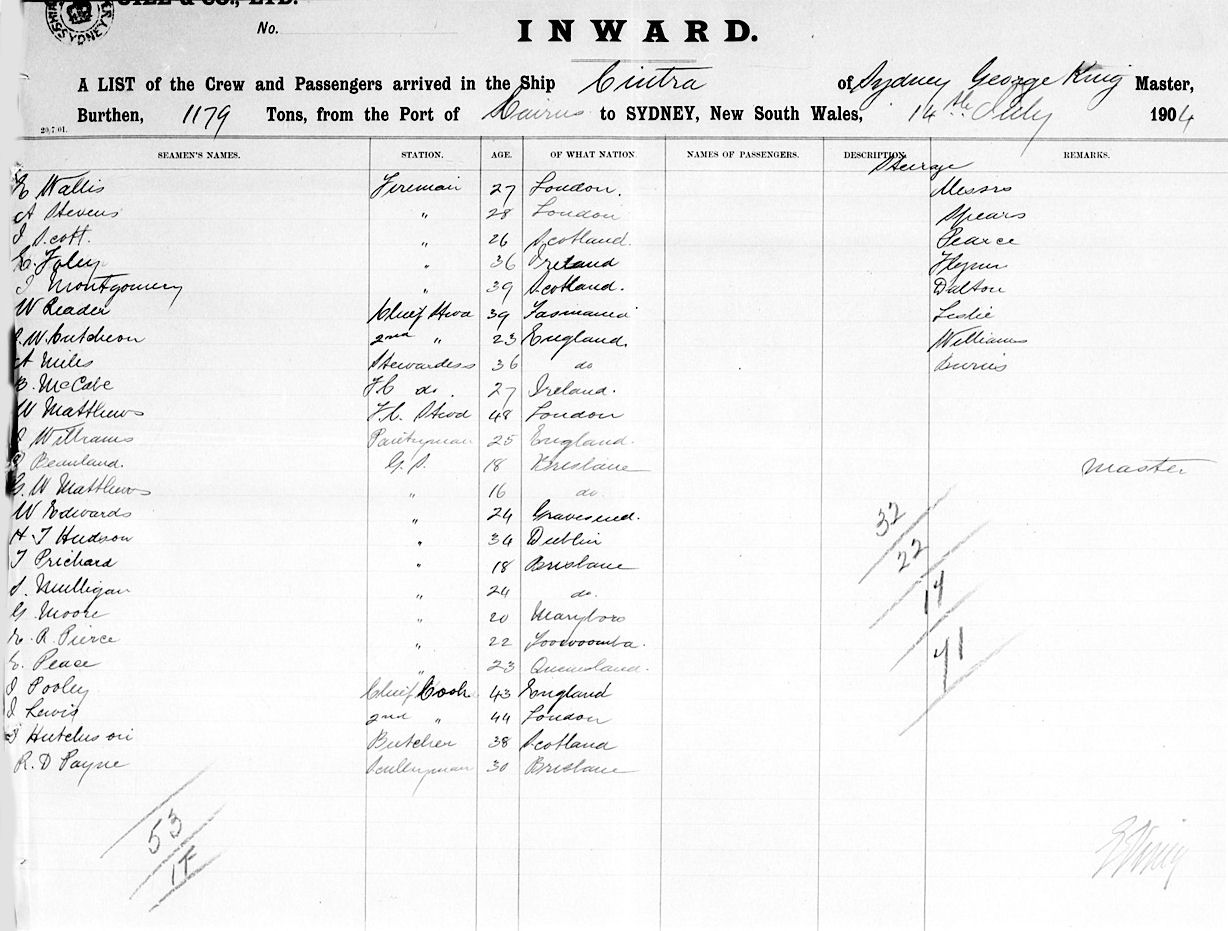 GILL & CO., LTD.
No.
INWARD.
A LIST of the Crew and Passengers arrived in the Ship Cintra of Sydney George King Master,
Burthen, 1179 Tons, from the Port of Cairns to SYDNEY, New South Wales, 14th July 1904
20.7.01.
SEAMEN'S NAMES. STATION. AGE. OF WHAT NATION. NAMES OF PASSENGERS. DESCRIPTION. REMARKS.
Steerage
E Wallis Fireman 27 London. Messrs
A Stevens " 28 London Spears
J Scott. " 26 Scotland. Pearce
E. Foley " 36 Ireland Flynn
J Montgomery " 39 Scotland. Dalton
W Reader Chief Stwd 39 Tasmania Leslie
W. Cutcheon 2nd " 23 England. Williams
A Miles Stewardess 36 do Burns
B. McCabe F.C do. 27 Ireland.
W Matthews F.C. Stwd 48 London
J Williams Pantryman 25 England.
Beauland. G.S. 18 Brisbane Master
G. W Matthews " 16 do.
W Edwards " 24 Gravesend.
H. J Hudson " 34 Dublin
T Prichard " 18 Brisbane
J. Mulligan " 24 do.
G. Moore " 20 Maryboro
E. R. Pierce " 22 Toowoomba.
E. Peace " 23 Queensland.
J Pooley Chief Cook 43 England
J Lewis 2nd " 44 London
J Hutchison Butcher 38 Scotland
R. D Payne Sculleryman 30 Brisbane
32
22
14
41
53
17